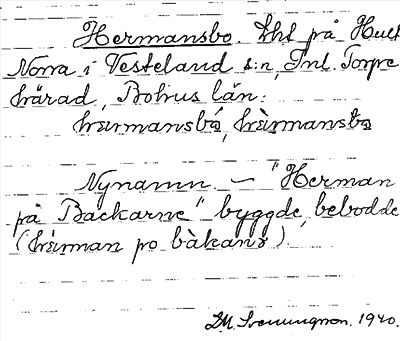 Hermansbo. Lht på Hult
Norra i Vesteland s:n, Inl. Torpe
härad, Bohus län:
hærmansbó, hærmansbo
Nynamn. — "Herman
på Backarne" byggde, bebodde
(hærman po bàkanə)
Svenungsson. 1940.